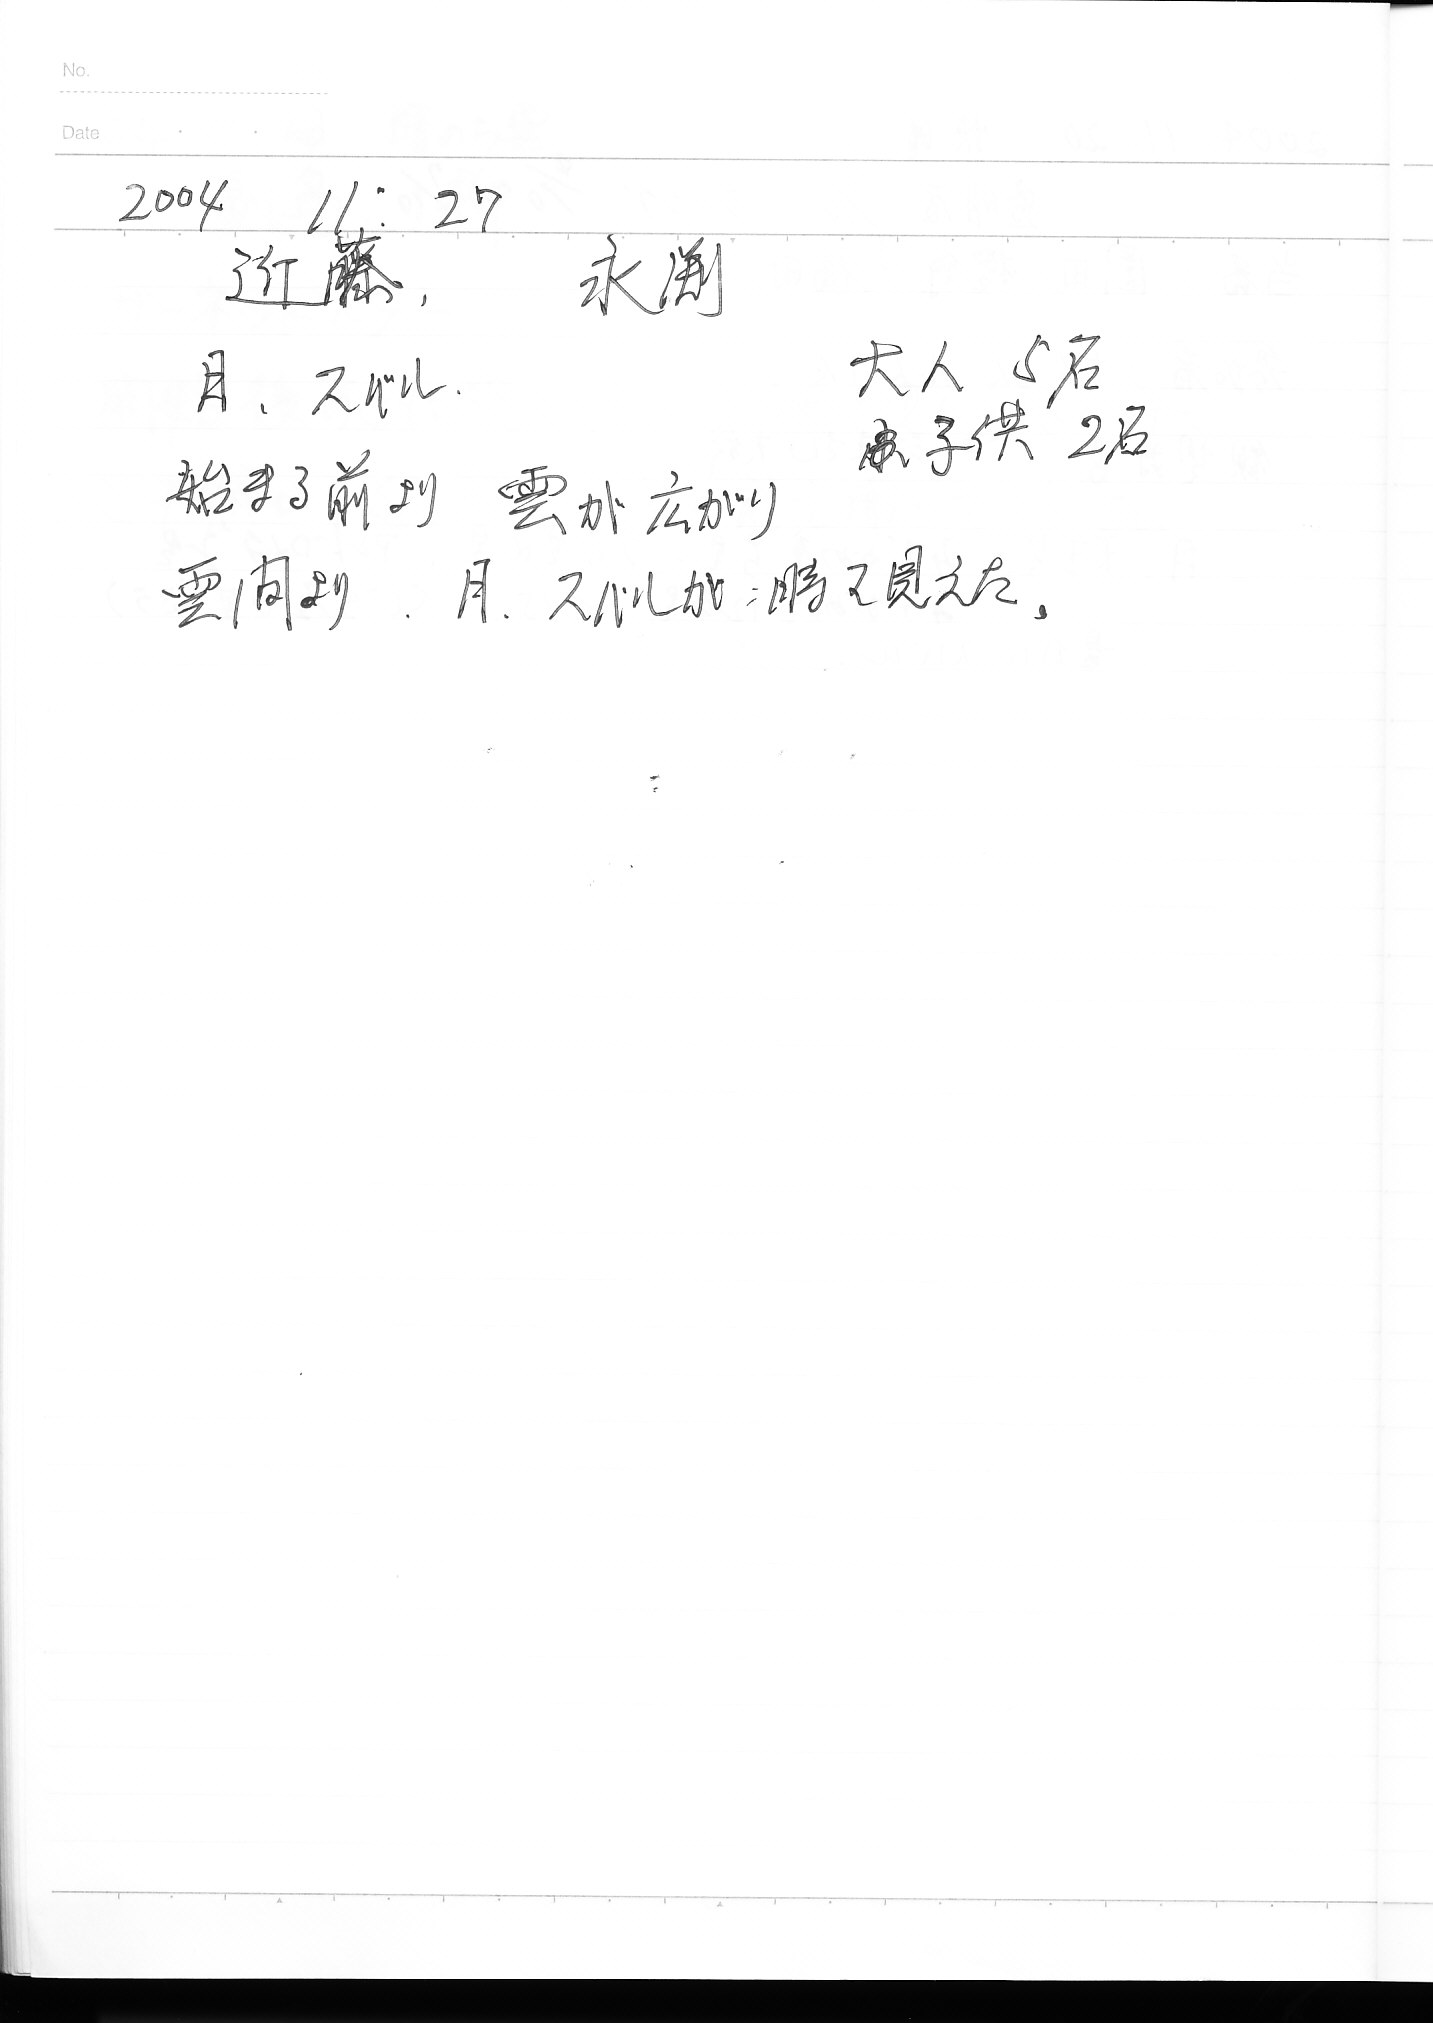 No.
Date
2004 11: 27
近藤、 永渕
月、スバル.
大人 5名
子供 2名
始まる前より 雲が広がり
雲間より、月、スバルが 時々見えた。